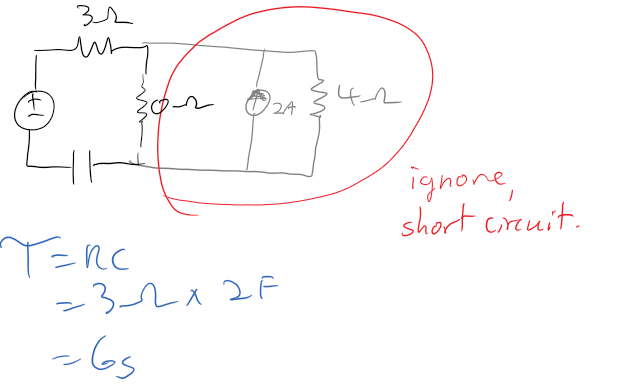 3Ω
0Ω
2A
4Ω
ignore,
short circuit.
τ = RC
= 3Ω x 2F
= 6s